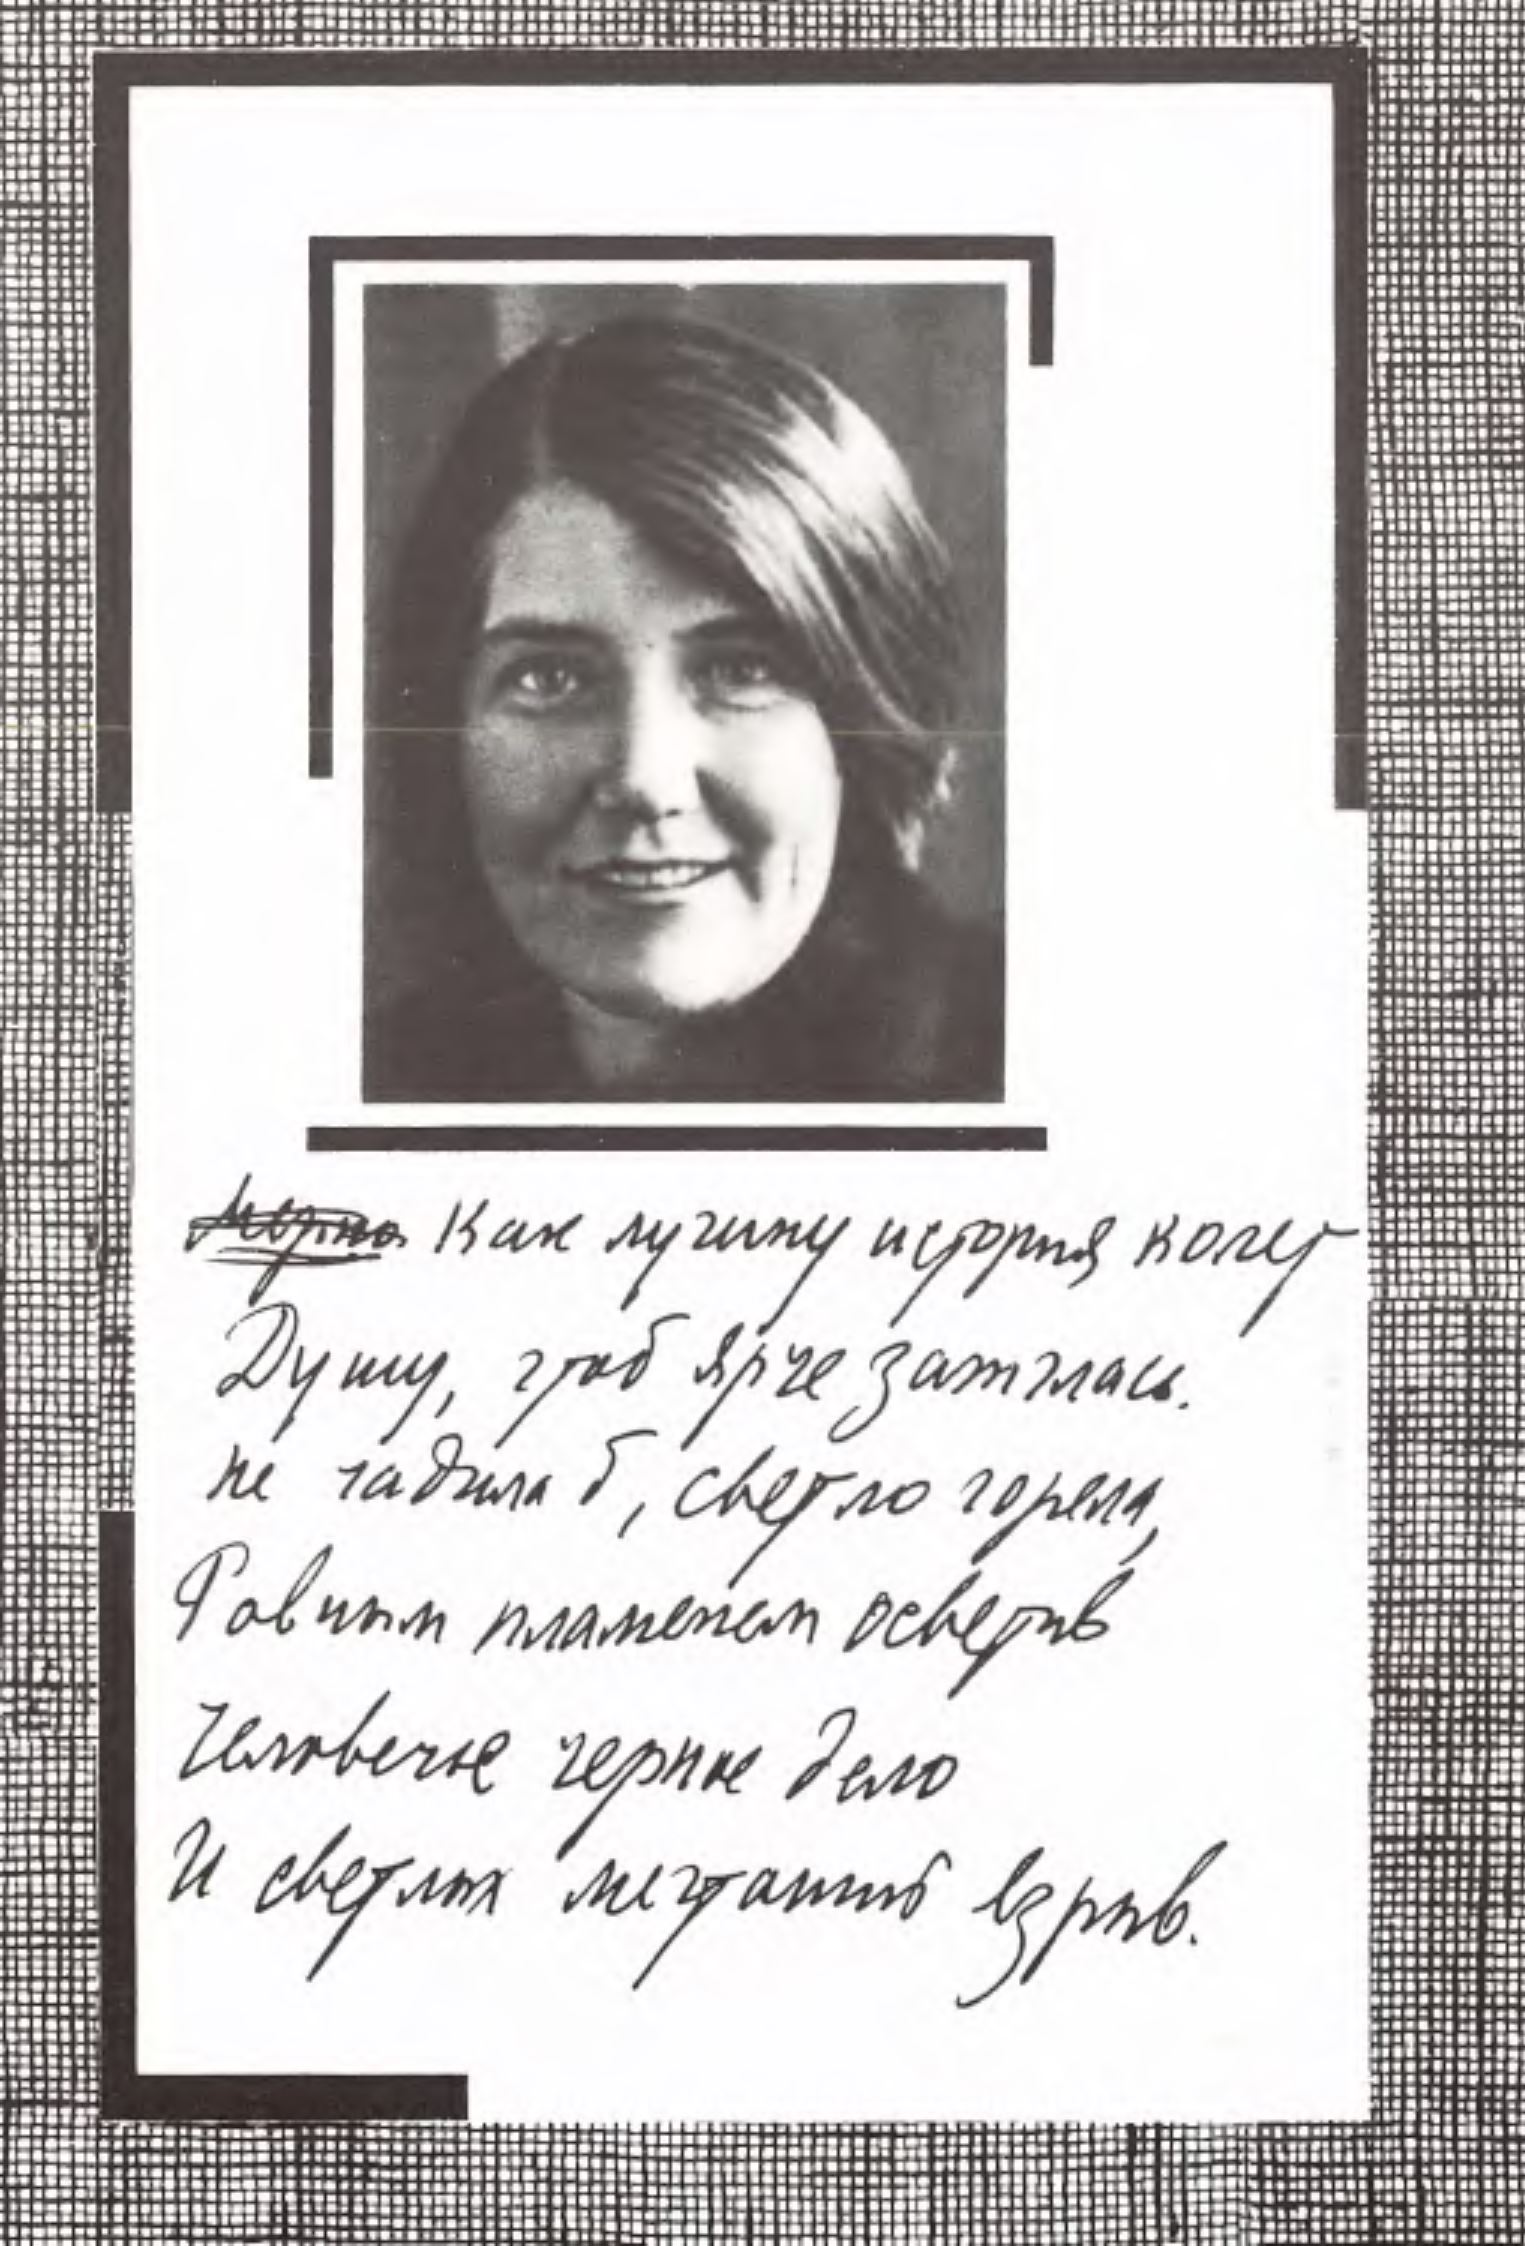 Как лучину история колет
Душу, чтоб ярче зажглась.
не чадила б, светло горела,
Ровным пламенем осветив
Человечье черное дело
И светлых мечтаний взрыв.